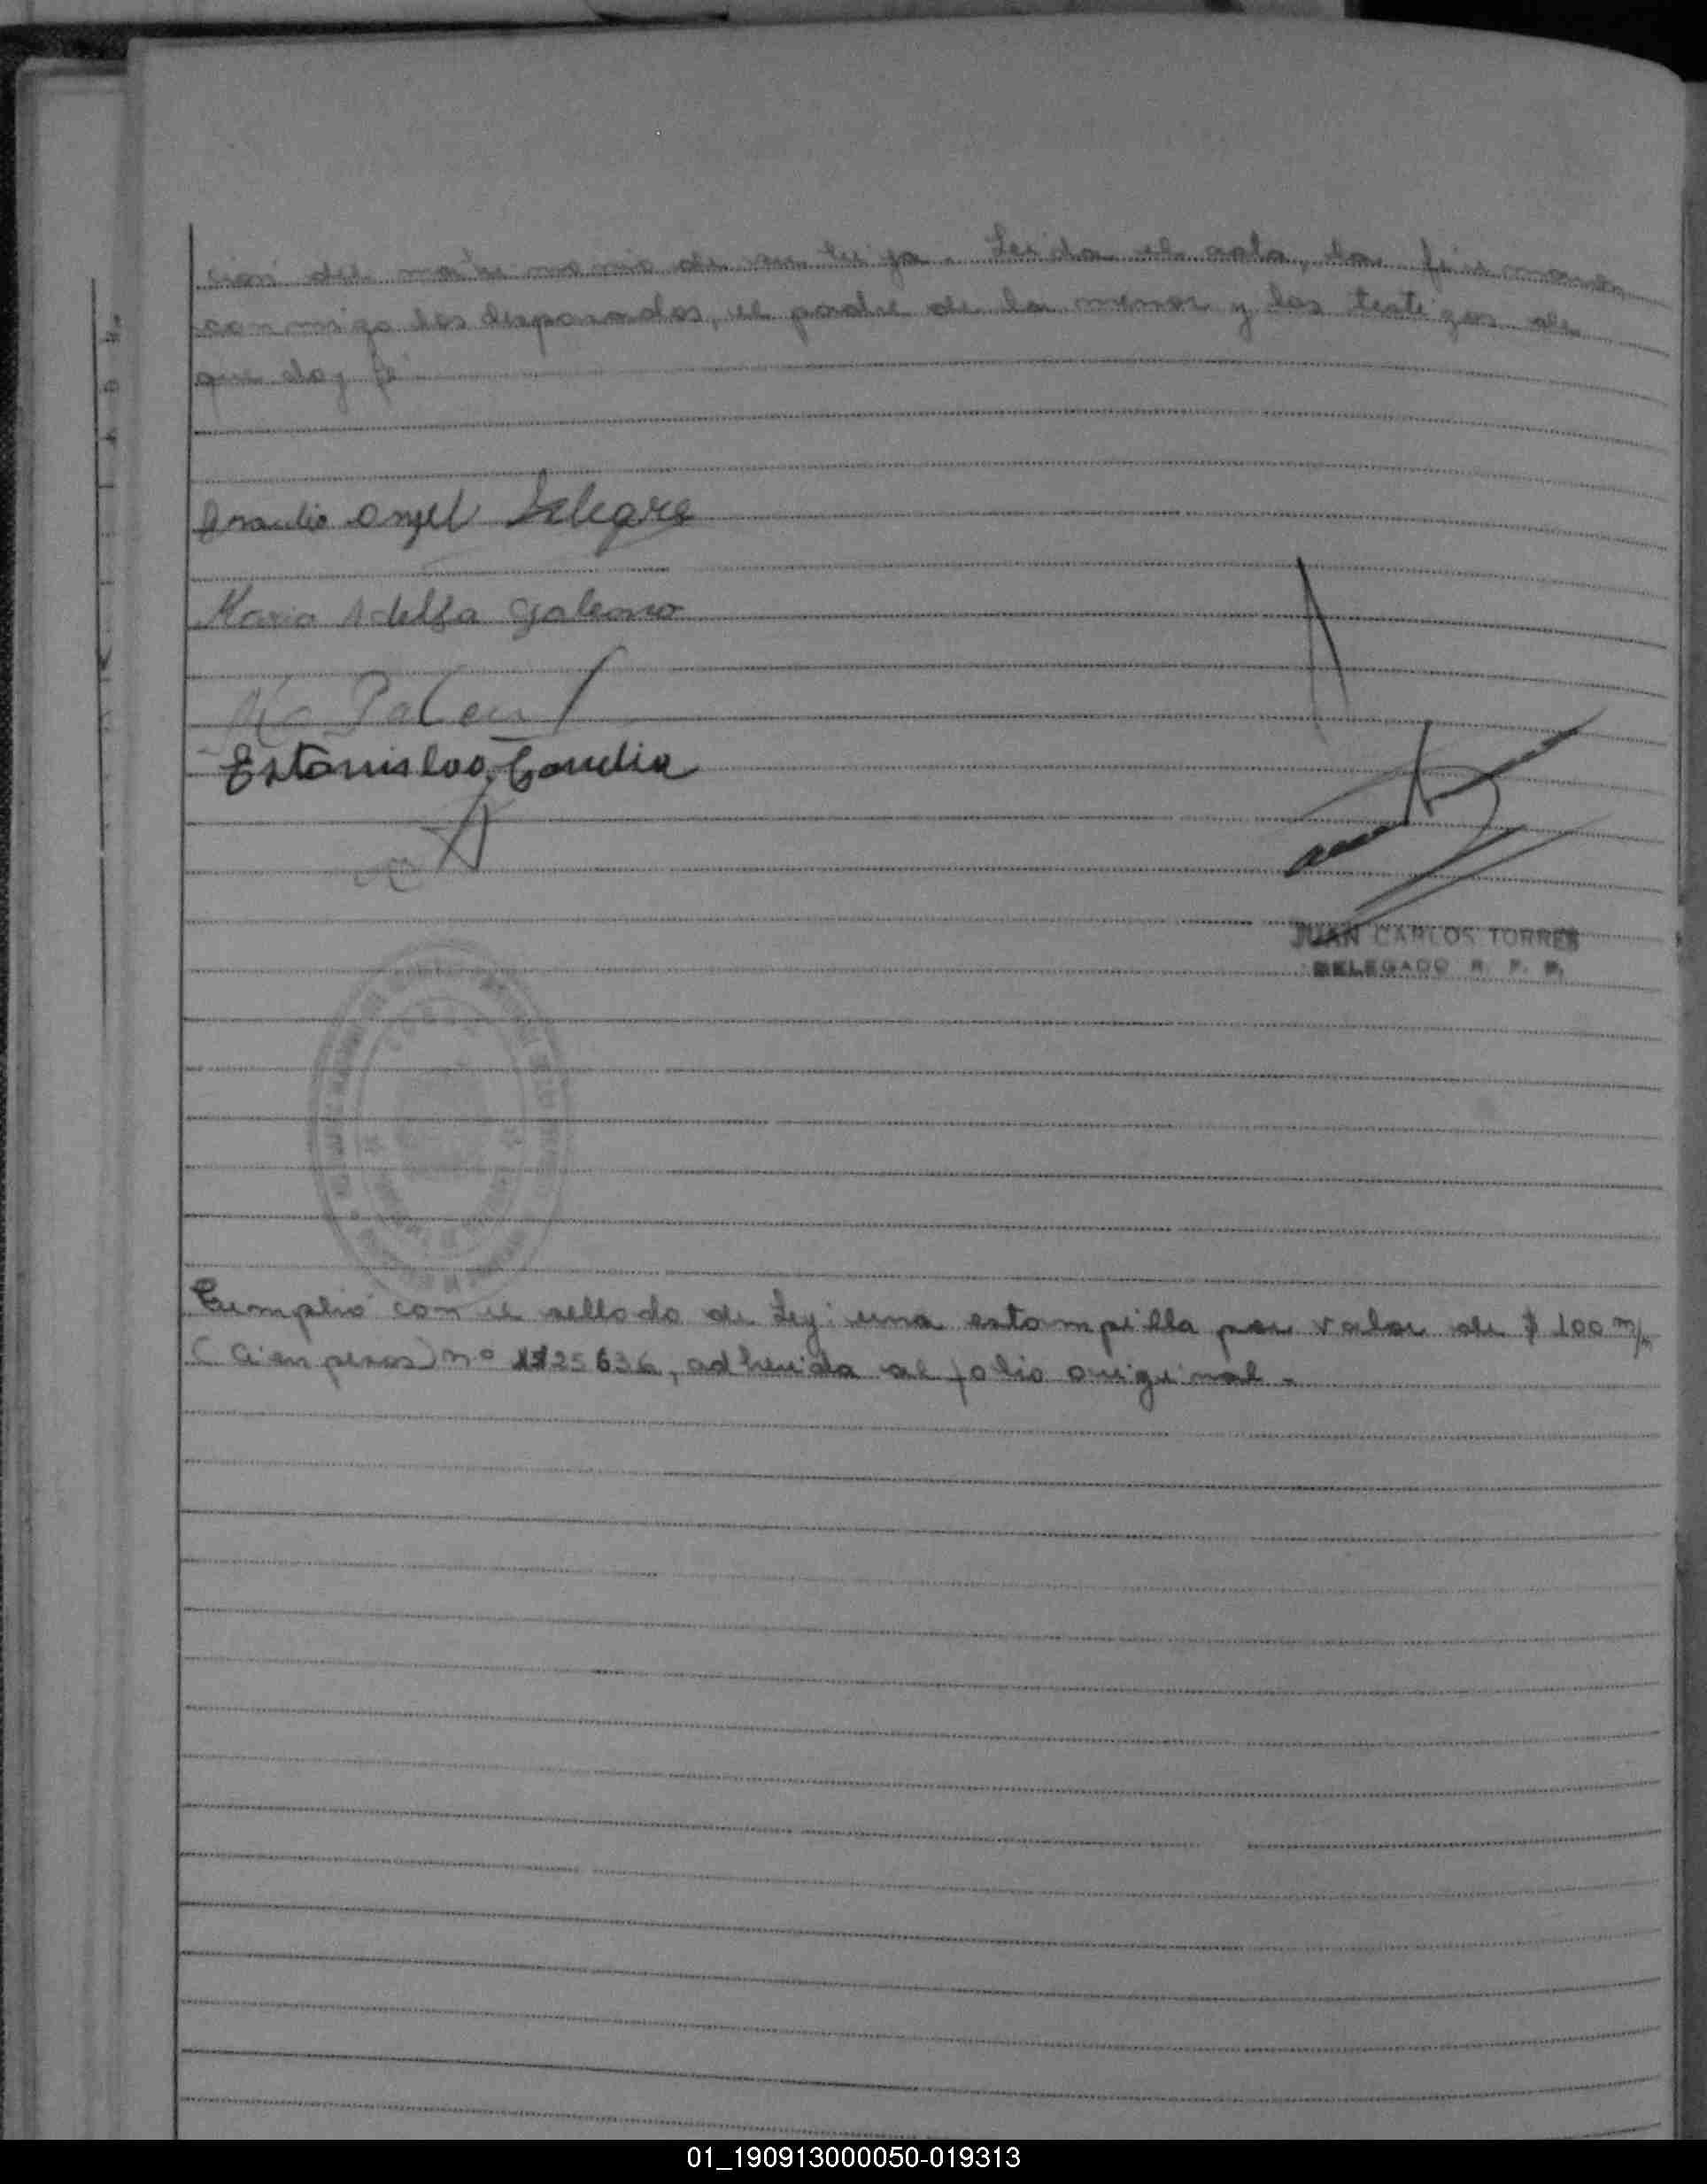 ción del matrimonio de su hija. Leida el acta, la firmaron
conmigo los desposados, el padre de la menor y los testigos de
que doy fé
Angel Alegre
Maria Adelfa Galeano
Estanislao Candia
JUAN CARLOS TORRES
DELEGADO R. P. P.
Cumplió con el sellado de Ley: una estampilla por valor de $ 100 m/n
(Cien pesos) nº 1725636, adherida al folio original.
01_190913000050-019313